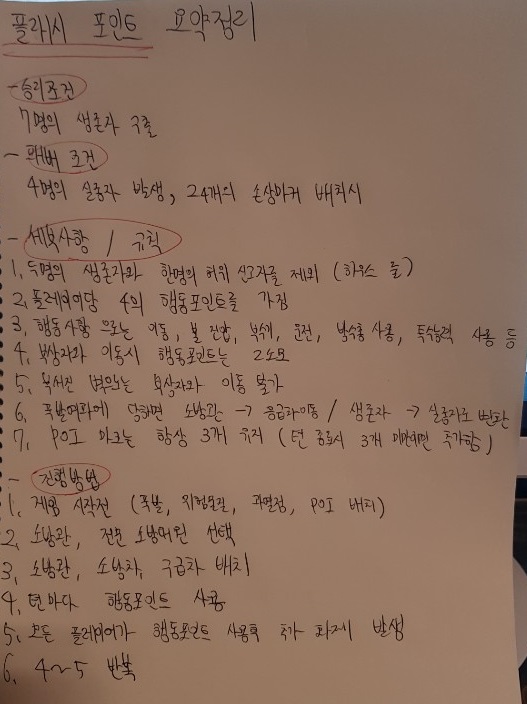 플래시 포인트 요약정리
- 승리조건
7명의 생존자 구출
- 패배 조건
4명의 실종자 발생, 24개의 손상마커 배치시
- 세부사항 / 규칙
1, 두명의 생존자와 한명의 허위 신고자를 제외 (하우스 룰)
2, 플레이어당 4의 행동포인트를 가짐
3, 행동사항 으로는 이동, 불 진압, 부수기, 운전, 방수총 사용, 특수능력 사용 등
4, 부상자와 이동시 행동포인트는 2소모
5, 부서진 벽으로는 부상자와 이동 불가
6, 폭발여파에 당하면 소방관 → 응급차이동 / 생존자 → 실종자로 변환
7, POI 마크는 항상 3개 유지 (턴 종료시 3개 미만이면 추가함)
- 진행방법
1, 게임 시작전 (폭발, 위험물질, 과열점, POI 배치)
2, 소방관, 전문 소방대원 선택
3, 소방관, 소방차, 구급차 배치
4, 턴마다 행동포인트 사용
5, 모든 플레이어가 행동포인트 사용후 추가 화제 발생
6, 4~5 반복